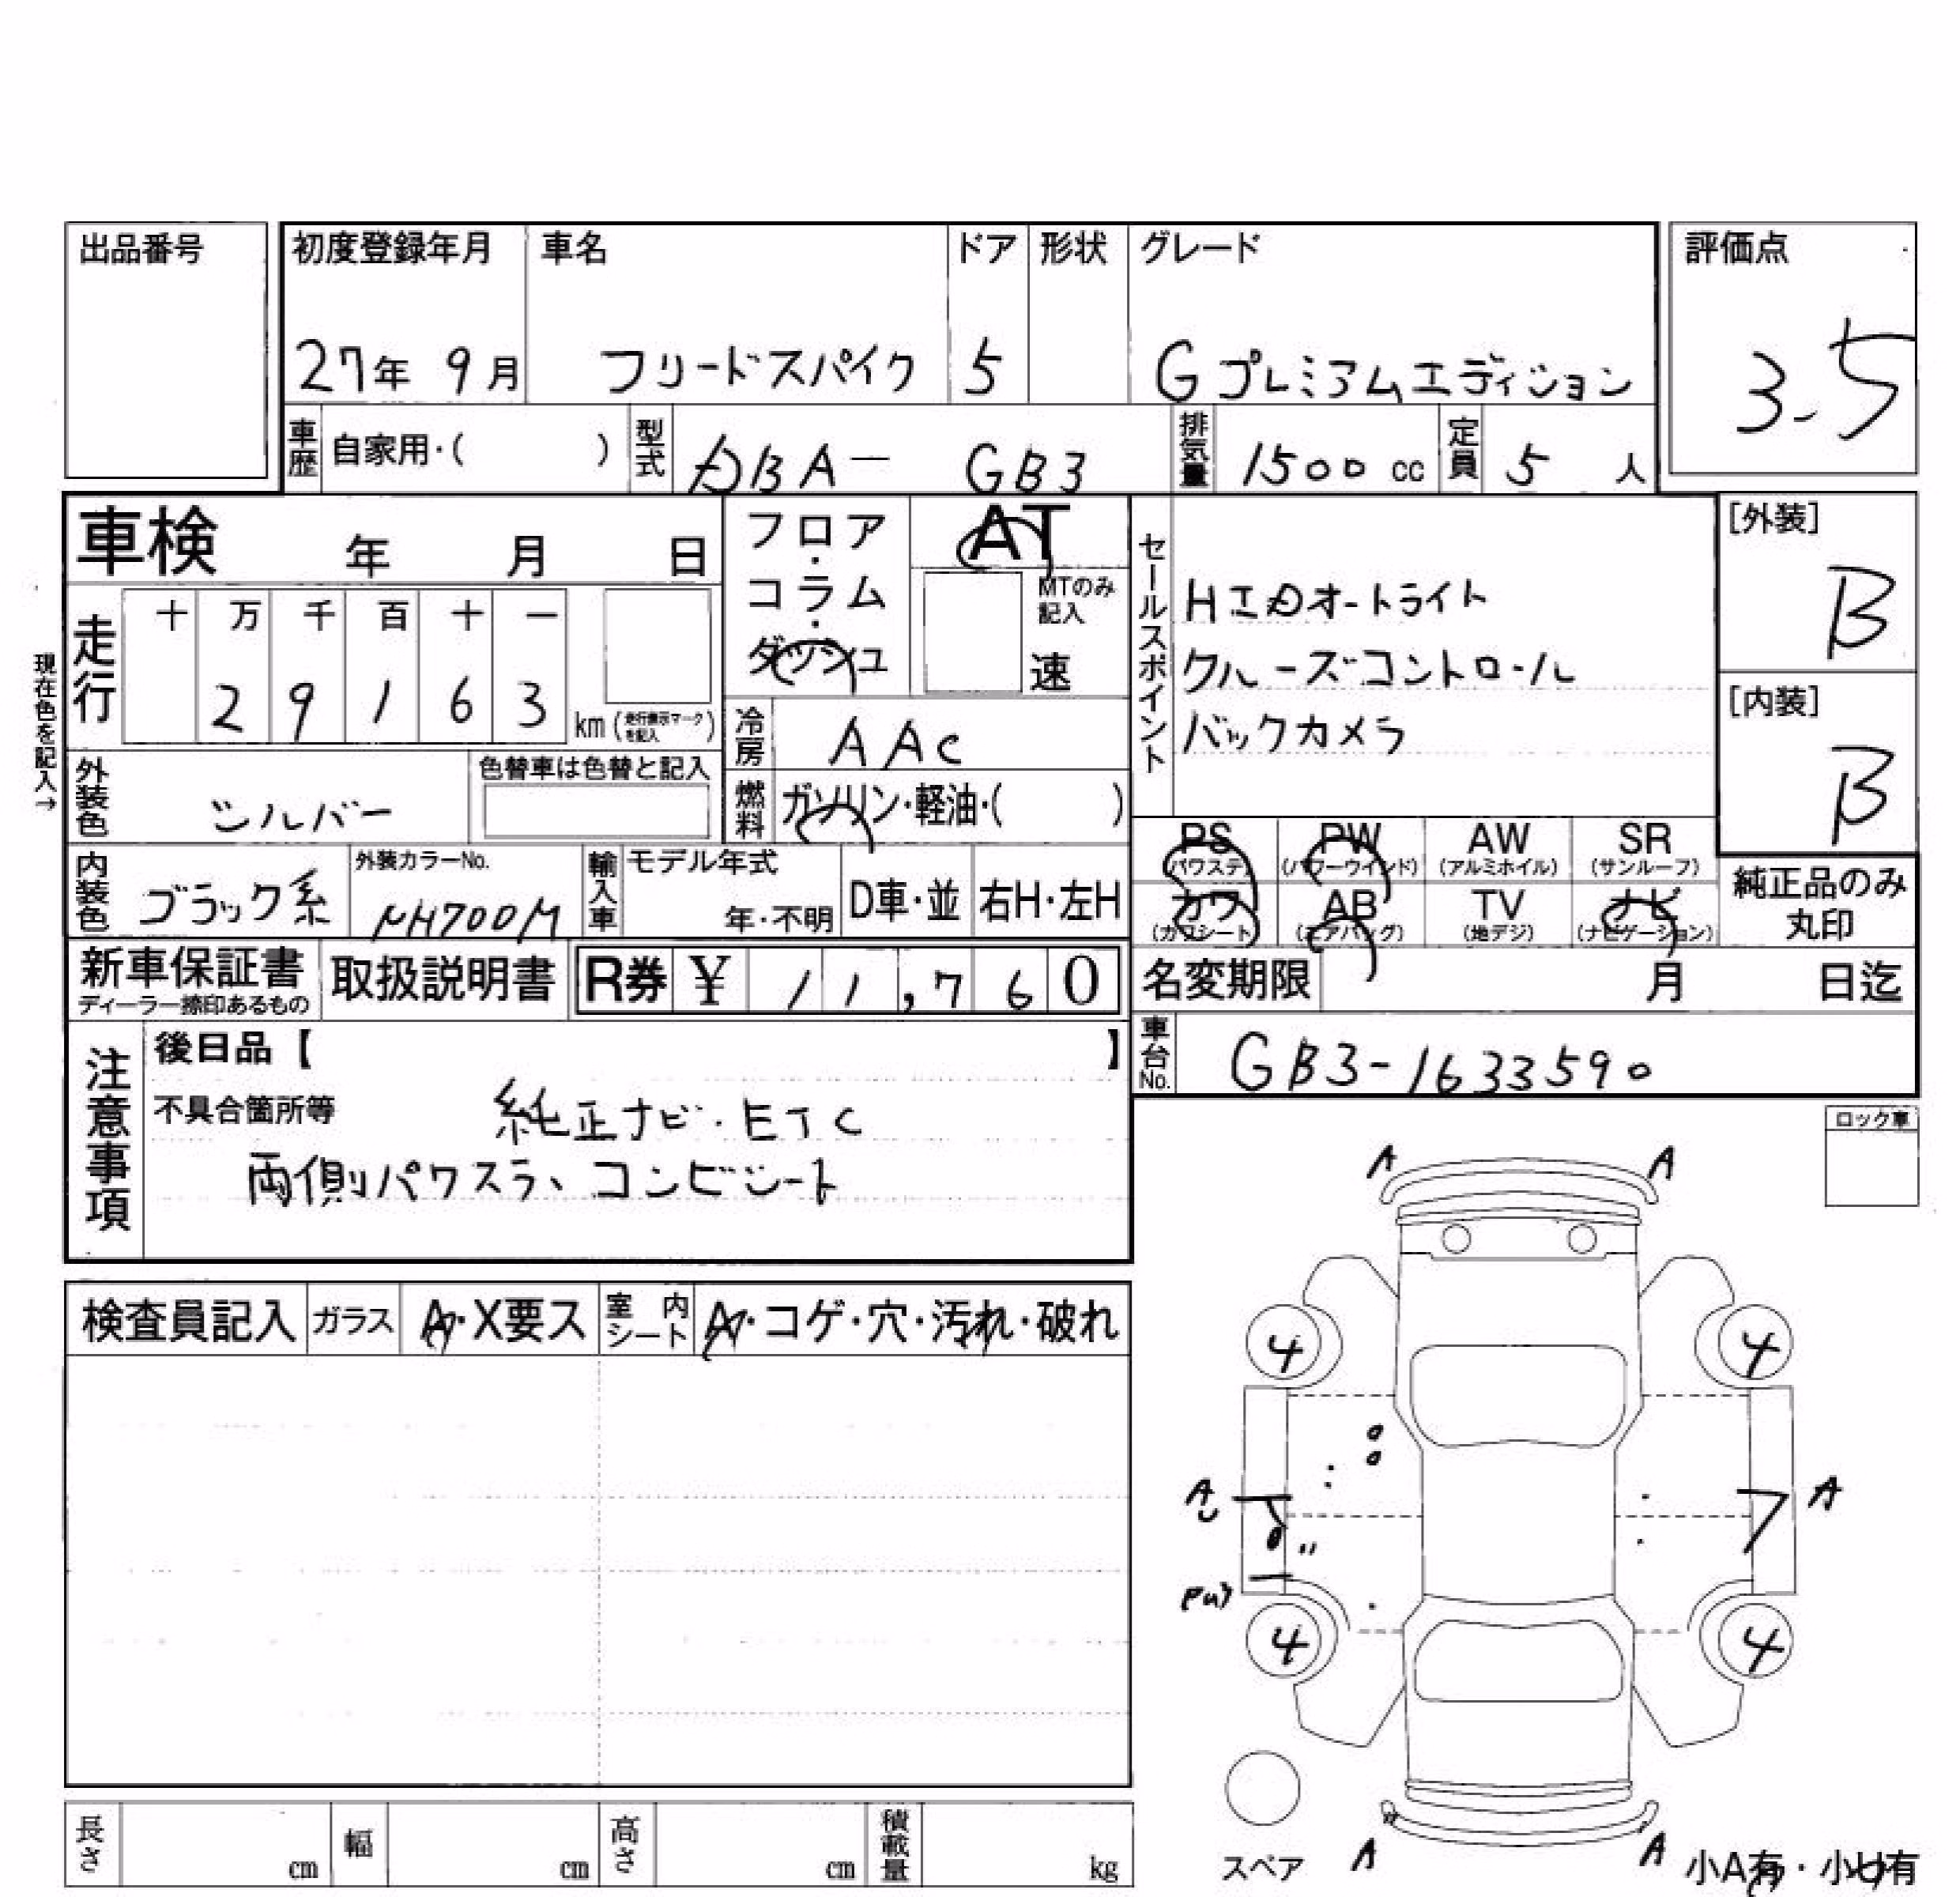 出品番号 初度登録年月 車名 ドア 形状 グレード 評価点
27年 9月 フリードスパイク 5 Gプレミアムエディション 3.5
車歴 自家用・( ) 型式 DBA- GB3 排気量 1500 cc 定員 5 人
車検 年 月 日
フロア・コラム・ダッシュ AT
MTのみ記入 速
セールスポイント
HIDオートライト
クルーズコントロール
バックカメラ
[外装] B
[内装] B
現在色を記入→
走行 十 万 千 百 十 一
2 9 1 6 3 km (走行表示マークを記入)
冷房 AAC
燃料 ガソリン・軽油・( )
外装色 シルバー 色替車は色替と記入
PS (パワステ) PW (パワーウインド) AW (アルミホイル) SR (サンルーフ)
カワ (カワシート) AB (エアバッグ) TV (地デジ) ナビ (ナビゲーション)
純正品のみ丸印
内装色 ブラック系 外装カラーNo. NH700M 輸入車 モデル年式 年・不明 D車・並 右H・左H
新車保証書 ディーラー捺印あるもの 取扱説明書 R券 ¥ 11,760
名変期限 月 日迄
車台No. GB3-1633590
注意事項
後日品【 】
不具合箇所等 純正ナビ・ETC
両側パワスラ、コンビシート
ロック車
検査員記入 ガラス A・X要ス 室内シート A・コゲ・穴・汚れ・破れ
A A
4 4
A A
4 4
スペア A A 小A有・小U有
長さ cm 幅 cm 高さ cm 積載量 kg